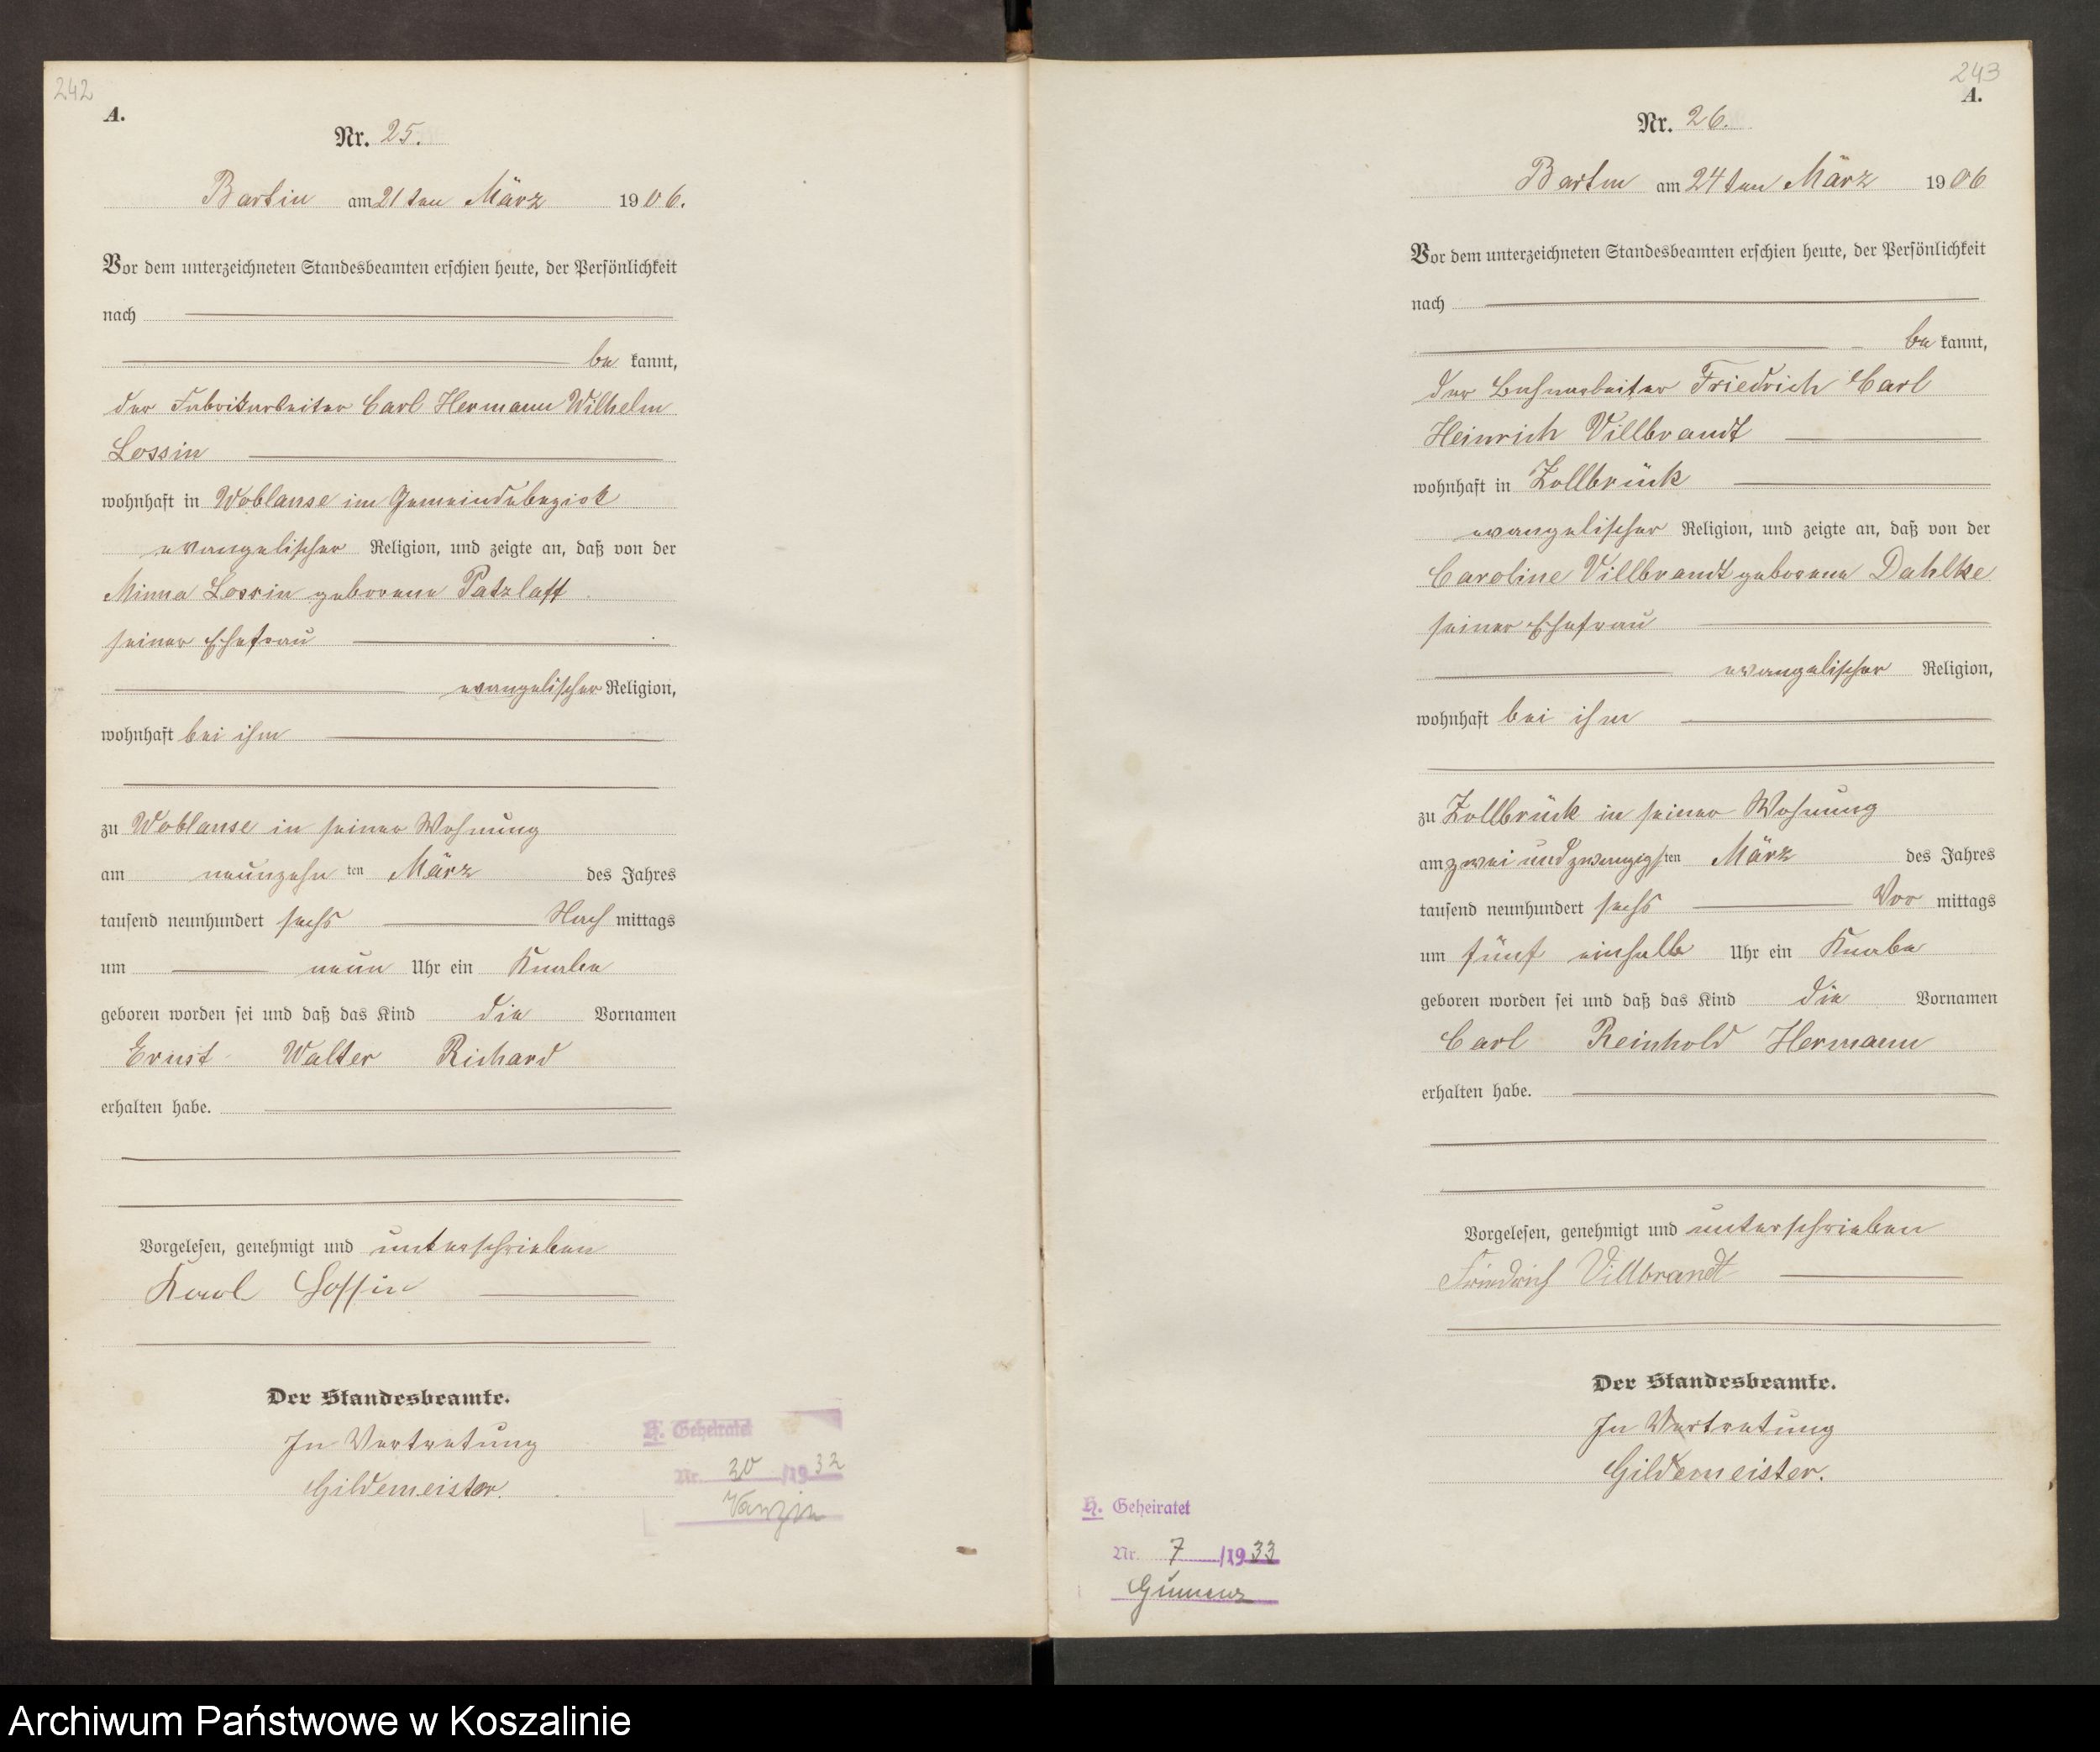 242
A.
Nr. 25.
Bartin am 21ten März 1906.
Vor dem unterzeichneten Standesbeamten erschien heute, der Persönlichkeit
nach
be kannt,
der Fabrikarbeiter Carl Hermann Wilhelm
Lossin
wohnhaft in Woblanse im Gemeindebezirk
evangelischer Religion, und zeigte an, daß von der
Minna Lossin geborene Patzlaff
seiner Ehefrau
evangelischer Religion,
wohnhaft bei ihm
zu Woblanse in seiner Wohnung
am neunzehn ten März des Jahres
tausend neunhundert sechs Nach mittags
um neun Uhr ein Knabe
geboren worden sei und daß das Kind die Vornamen
Ernst Walter Richard
erhalten habe.
Vorgelesen, genehmigt und unterschrieben
Karl Lossin
Der Standesbeamte.
In Vertretung
Gildemeister.
H. Geheiratet
Nr. 20 /1932
Varzin
243
A.
Nr. 26.
Bartin am 24ten März 1906
Vor dem unterzeichneten Standesbeamten erschien heute, der Persönlichkeit
nach
be kannt,
der Bahnarbeiter Friedrich Carl
Heinrich Villbrandt
wohnhaft in Zollbrück
evangelischer Religion, und zeigte an, daß von der
Caroline Villbrandt geborene Dahlke
seiner Ehefrau
evangelischer Religion,
wohnhaft bei ihm
zu Zollbrück in seiner Wohnung
am zwei und zwanzigsten März des Jahres
tausend neunhundert sechs Vor mittags
um fünf einhalb Uhr ein Knabe
geboren worden sei und daß das Kind die Vornamen
Carl Reinhold Hermann
erhalten habe.
Vorgelesen, genehmigt und unterschrieben
Friedrich Villbrandt
Der Standesbeamte.
In Vertretung
Gildemeister.
H. Geheiratet
Nr. 7 /1933
Gumenz
Archiwum Państwowe w Koszalinie